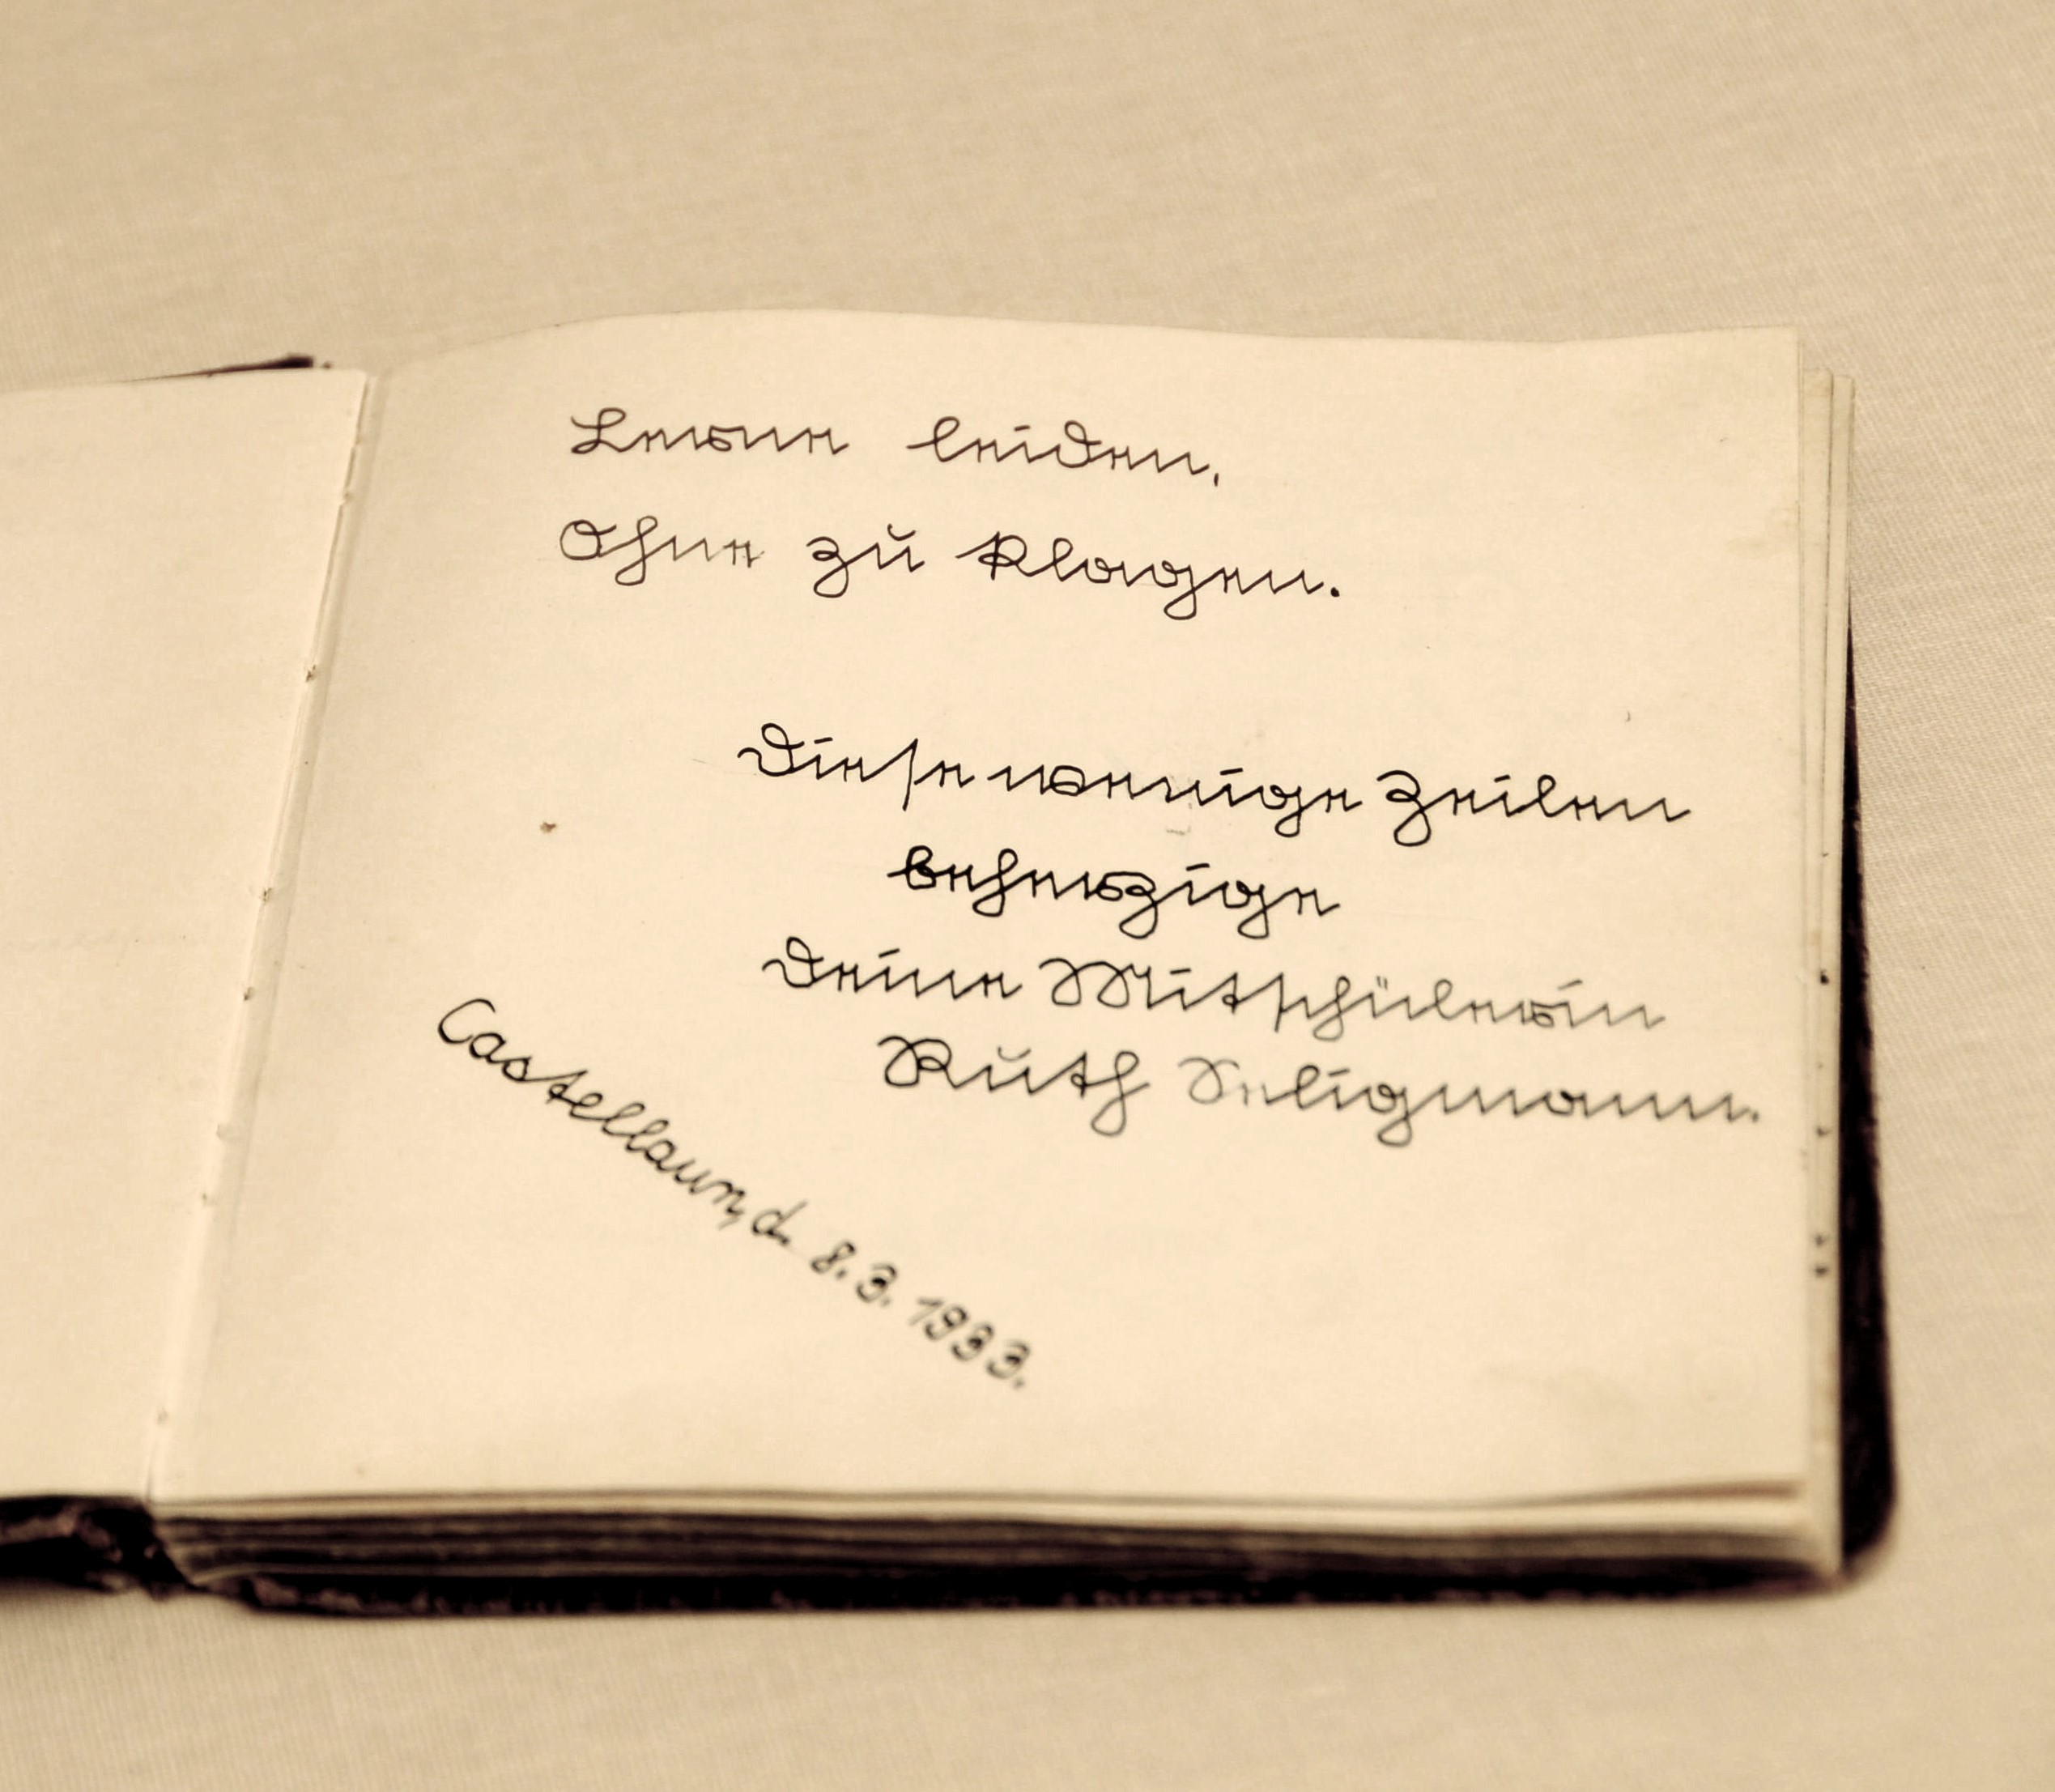 Lerne leiden,
Ohne zu Klagen.
Diese wenige Zeilen
beherzige
Deine Mitschülerin
Ruth Seligmann.
Castellaun, d. 8.3.1933.